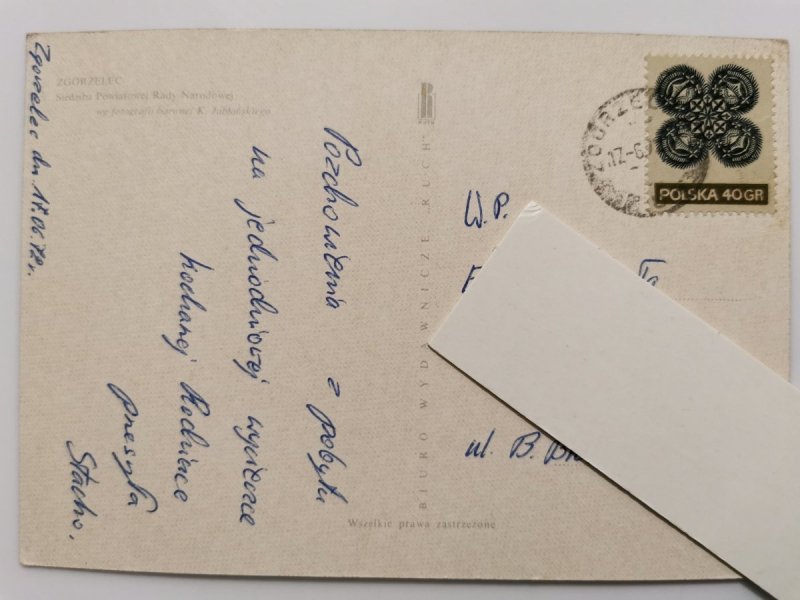 ZGORZELEC
Siedziba Powiatowej Rady Narodowej
wg fotografii barwnej K. Jabłońskiego
Zgorzelec dn. 17.06.72r.
Pozdrowienia z pobytu
na jednodniowej wycieczce
kochanej Rodzince
przesyła
Stacho.
BIURO WYDAWNICZE „RUCH"
Wszelkie prawa zastrzeżone
ZGORZELEC
17-6
POLSKA 40 GR
W.P.
ul. B.